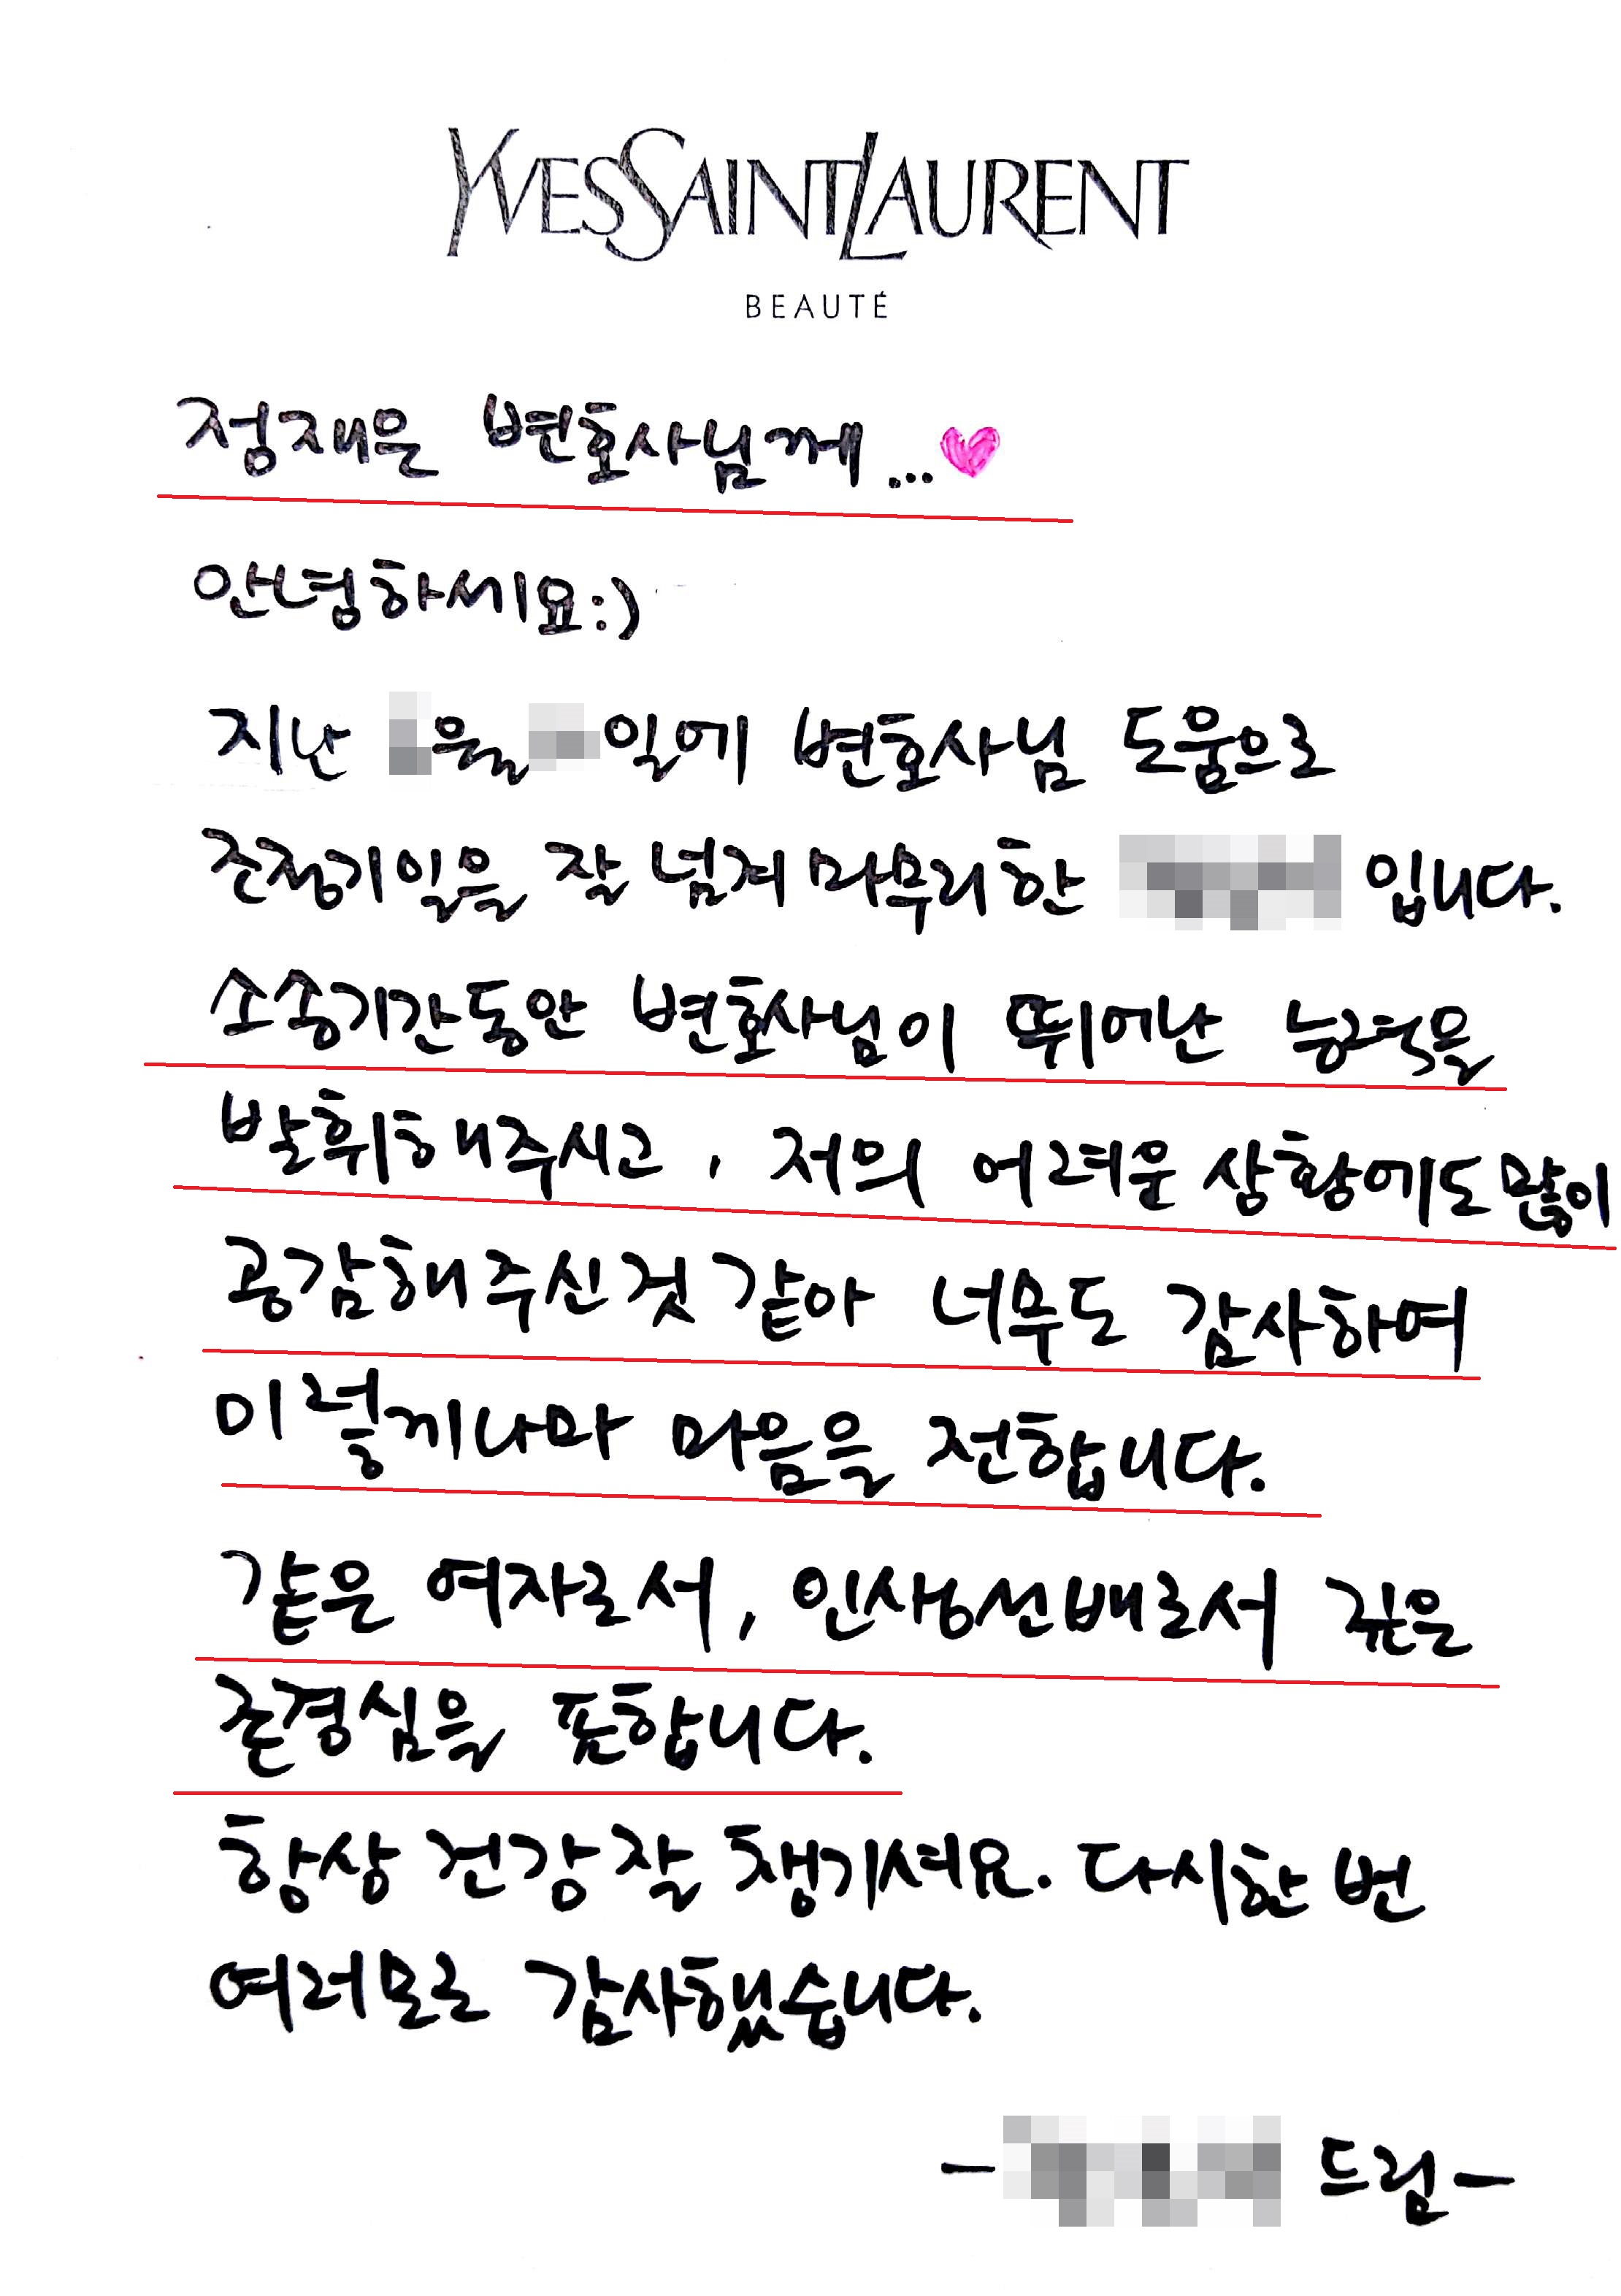 YVESSAINTLAURENT
BEAUTÉ
정재은 변호사님께...
안녕하세요:)
지난 월 일에 변호사님 도움으로
조정기일을 잘 넘겨 마무리한 입니다.
소송기간동안 변호사님이 뛰어난 능력을
발휘해주시고, 저의 어려운 상황에도 많이
공감해주신것 같아 너무도 감사하여
이렇게나마 마음을 전합니다.
같은 여자로서, 인생선배로서 깊은
존경심을 표합니다.
항상 건강 잘 챙기셔요. 다시한번
여러모로 감사했습니다.
- 드림-